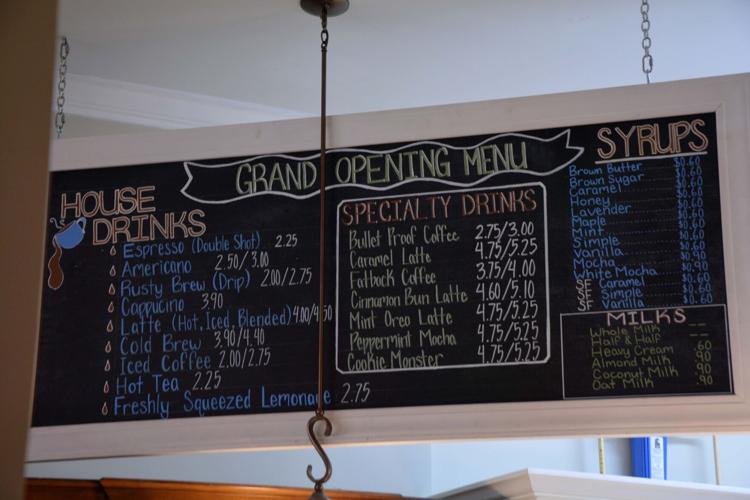 GRAND OPENING MENU
HOUSE
DRINKS
Espresso (Double Shot) 2.25
Americano 2.50/3.00
Rusty Brew (Drip) 2.00/2.75
Cappucino 3.90
Latte (Hot, Iced, Blended) 4.00/4.50
Cold Brew 3.90/4.40
Iced Coffee 2.00/2.75
Hot Tea 2.25
Freshly Squeezed Lemonade 2.75
SPECIALTY DRINKS
Bullet Proof Coffee 2.75/3.00
Caramel Latte 4.75/5.25
Fatback Coffee 3.75/4.00
Cinnamon Bun Latte 4.60/5.10
Mint Oreo Latte 4.75/5.25
Peppermint Mocha 4.75/5.25
Cookie Monster 4.75/5.25
SYRUPS
Brown Butter $0.60
Brown Sugar $0.60
Caramel $0.60
Honey $0.60
Lavender $0.60
Maple $0.60
Mint $0.60
Simple $0.60
Vanilla $0.60
Mocha $0.90
White Mocha $0.90
SF Caramel $0.60
SF Simple $0.60
SF Vanilla $0.60
MILKS
Whole Milk --
Half & Half --
Heavy Cream .60
Almond Milk .90
Coconut Milk .90
Oat Milk .90